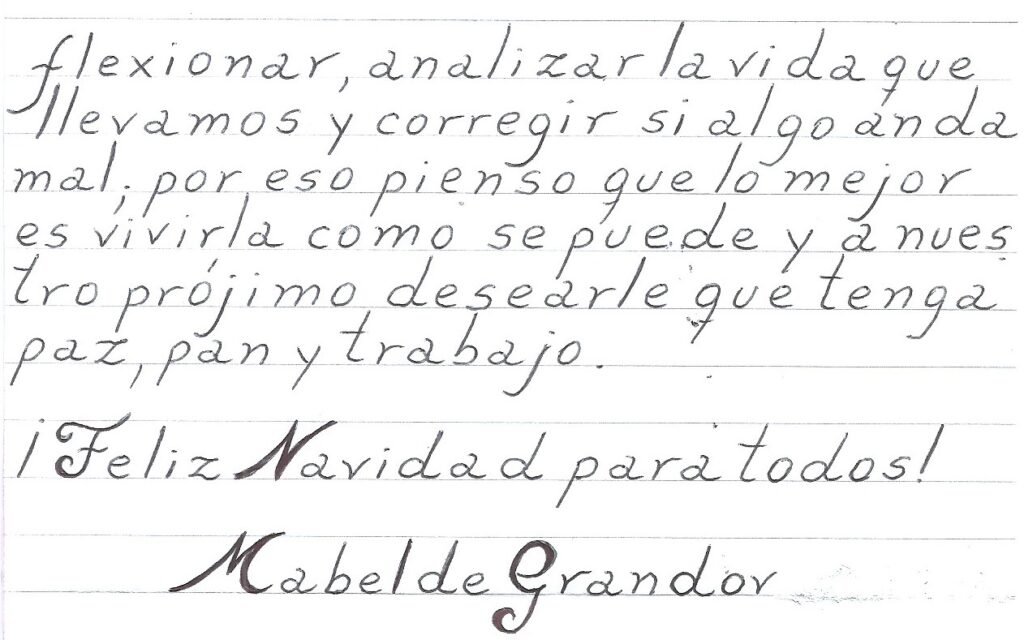 flexionar, analizar la vida que
llevamos y corregir si algo anda
mal; por eso pienso que lo mejor
es vivirla como se puede y a nues
tro prójimo desearle que tenga
paz, pan y trabajo.
¡Feliz Navidad para todos!
Mabel de Grandov